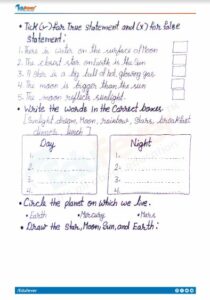 • Tick (✓) for True statement and (x) for false
statement:
1. There is water on the surface of Moon
2. The closest star on Earth is the Sun
3. A Star is a big ball of hot, glowing gas
4. The moon is bigger than the sun
5. The moon reflects sunlight.
• Write the words in the Correct boxes
[Sunlight, dream, Moon, rainbow, Stars, breakfast
dinner, lunch]
Day
Night
1.
2.
3.
4.
1.
2.
3.
4.
• Circle the planet on which we live.
• Earth • Mercury • Mars
• Draw the Star, Moon, Sun, and Earth: